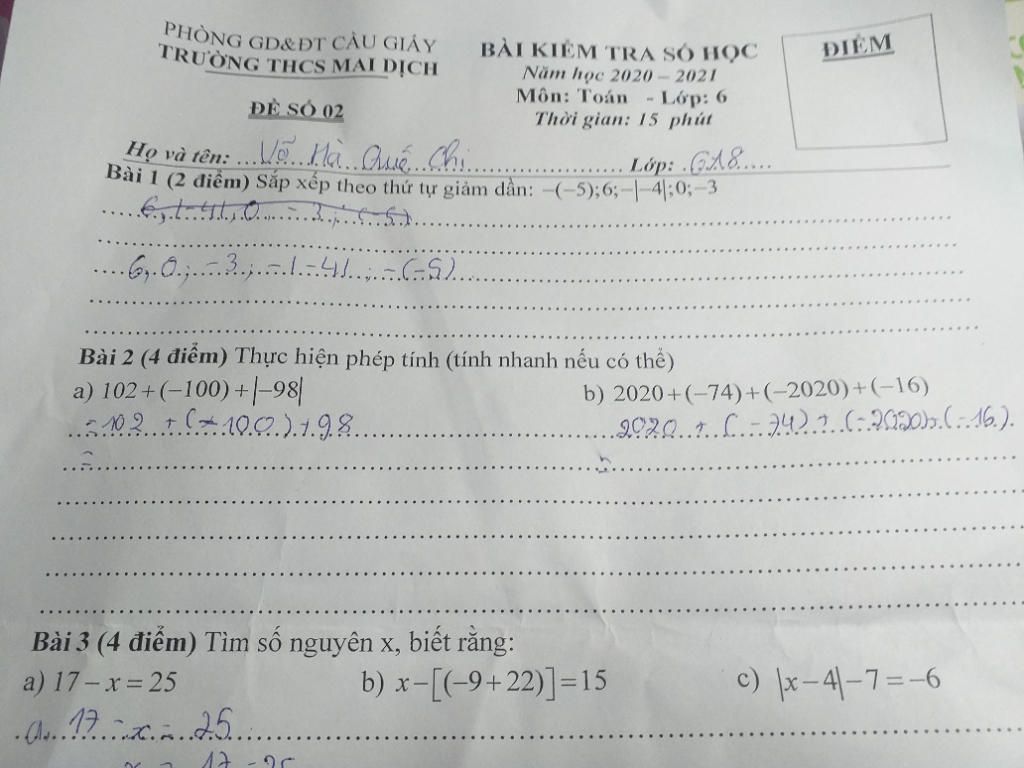 PHÒNG GD&ĐT CẦU GIẤY
TRƯỜNG THCS MAI DỊCH
ĐỀ SỐ 02
BÀI KIỂM TRA SỐ HỌC
Năm học 2020 – 2021
Môn: Toán - Lớp: 6
Thời gian: 15 phút
ĐIỂM
Họ và tên: Võ Hà Quế Chi Lớp: 6A8
Bài 1 (2 điểm) Sắp xếp theo thứ tự giảm dần: –(–5);6;–|–4|;0;–3
6, |-4|, 0, -3; -(-5)
6, 0; -3; -|-4|; -(-5)
Bài 2 (4 điểm) Thực hiện phép tính (tính nhanh nếu có thể)
a) 102+(–100)+|–98| b) 2020+(–74)+(–2020)+(–16)
= 102 + (-100) + 98 2020 + (-74) + (-2020) + (-16)
= =
Bài 3 (4 điểm) Tìm số nguyên x, biết rằng:
a) 17–x=25 b) x–[(–9+22)]=15 c) |x–4|–7=–6
a. 17 - x = 25
x = 17 - 25